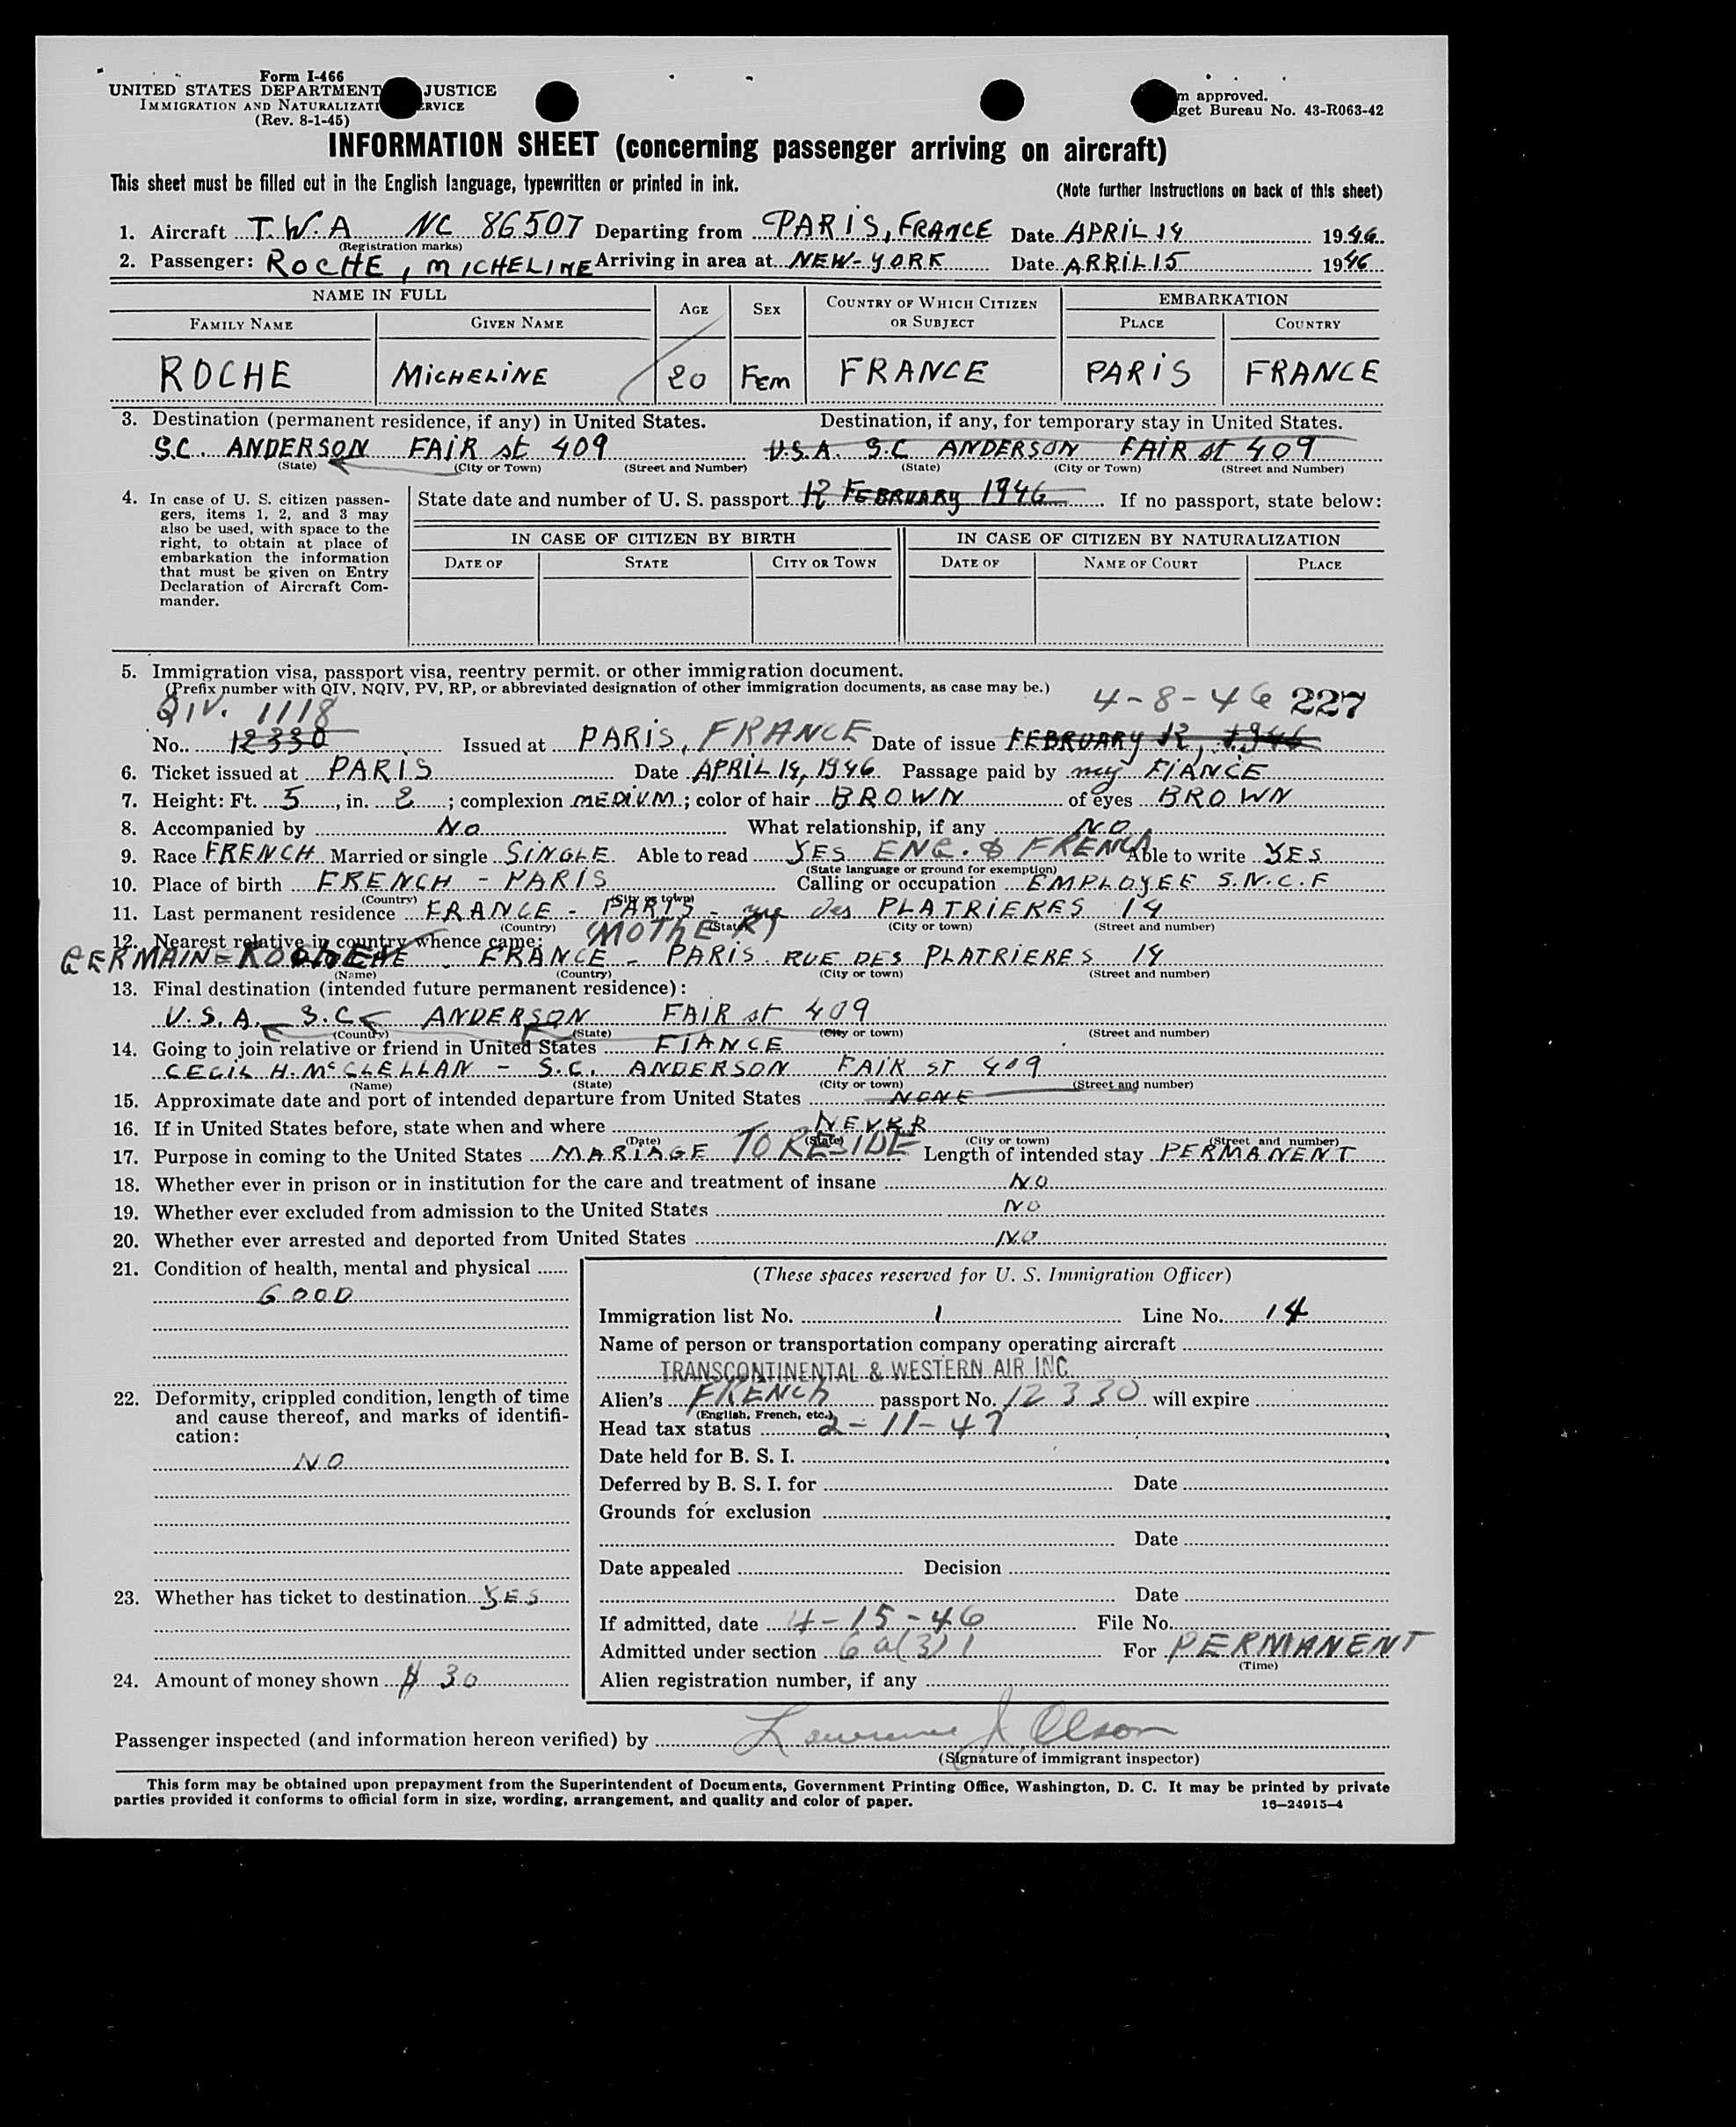 Form I-466
UNITED STATES DEPARTMENT JUSTICE
IMMIGRATION AND NATURALIZATI ERVICE
(Rev. 8-1-45)
m approved.
get Bureau No. 43-R063-42
INFORMATION SHEET (concerning passenger arriving on aircraft)
This sheet must be filled out in the English language, typewritten or printed in ink.
(Note further instructions on back of this sheet)
1. Aircraft T.W.A NC 86507 Departing from PARIS, FRANCE Date APRIL 14 1946
(Registration marks)
2. Passenger: ROCHE, MICHELINE Arriving in area at NEW-YORK Date APRIL 15 1946
NAME IN FULL AGE SEX COUNTRY OF WHICH CITIZEN OR SUBJECT EMBARKATION
FAMILY NAME GIVEN NAME PLACE COUNTRY
ROCHE MICHELINE 20 FEM FRANCE PARIS FRANCE
3. Destination (permanent residence, if any) in United States. Destination, if any, for temporary stay in United States.
S.C. ANDERSON FAIR St 409 U.S.A. S.C ANDERSON FAIR St 409
(State) (City or Town) (Street and Number) (State) (City or Town) (Street and Number)
4. In case of U. S. citizen passen-
gers, items 1, 2, and 3 may
also be used, with space to the
right, to obtain at place of
embarkation the information
that must be given on Entry
Declaration of Aircraft Com-
mander.
State date and number of U. S. passport 12 FEBRUARY 1946 If no passport, state below:
IN CASE OF CITIZEN BY BIRTH IN CASE OF CITIZEN BY NATURALIZATION
DATE OF STATE CITY OR TOWN DATE OF NAME OF COURT PLACE
5. Immigration visa, passport visa, reentry permit. or other immigration document.
(Prefix number with QIV, NQIV, PV, RP, or abbreviated designation of other immigration documents, as case may be.)
QIV. 1118 4-8-46 227
No. 12330 Issued at PARIS, FRANCE Date of issue FEBRUARY 12, 1946
6. Ticket issued at PARIS Date APRIL 14, 1946 Passage paid by my FIANCE
7. Height: Ft. 5, in. 2; complexion MEDIUM; color of hair BROWN of eyes BROWN
8. Accompanied by No What relationship, if any NO
9. Race FRENCH Married or single SINGLE Able to read YES ENG. & FRENCH Able to write YES
(State language or ground for exemption)
10. Place of birth FRENCH - PARIS Calling or occupation EMPLOYEE S.N.C.F
(Country) (City or town)
11. Last permanent residence FRANCE - PARIS - rue des PLATRIERES 14
(Country) (State) (City or town) (Street and number)
12. Nearest relative in country whence came: (MOTHER)
GERMAINE ROCHE - FRANCE - PARIS RUE DES PLATRIERES 14
(Name) (Country) (City or town) (Street and number)
13. Final destination (intended future permanent residence):
U.S.A. S.C. ANDERSON FAIR St 409
(Country) (State) (City or town) (Street and number)
14. Going to join relative or friend in United States FIANCE
CECIL H. McCLELLAN - S.C. ANDERSON FAIR ST 409
(Name) (State) (City or town) (Street and number)
15. Approximate date and port of intended departure from United States NONE
16. If in United States before, state when and where NEVER
(Date) (State) (City or town) (Street and number)
17. Purpose in coming to the United States MARIAGE TO RESIDE Length of intended stay PERMANENT
18. Whether ever in prison or in institution for the care and treatment of insane NO
19. Whether ever excluded from admission to the United States NO
20. Whether ever arrested and deported from United States NO
21. Condition of health, mental and physical
GOOD
22. Deformity, crippled condition, length of time
and cause thereof, and marks of identifi-
cation:
NO
23. Whether has ticket to destination YES
24. Amount of money shown $ 30
(These spaces reserved for U. S. Immigration Officer)
Immigration list No. 1 Line No. 14
Name of person or transportation company operating aircraft
TRANSCONTINENTAL & WESTERN AIR INC.
Alien's FRENCH passport No. 12330 will expire
(English, French, etc.)
Head tax status 2-11-47
Date held for B. S. I.
Deferred by B. S. I. for Date
Grounds for exclusion
Date
Date appealed Decision
Date
If admitted, date 4-15-46 File No.
Admitted under section 6a(3)1 For PERMANENT
(Time)
Alien registration number, if any
Passenger inspected (and information hereon verified) by Lawrence J Olson
(Signature of immigrant inspector)
This form may be obtained upon prepayment from the Superintendent of Documents, Government Printing Office, Washington, D. C. It may be printed by private
parties provided it conforms to official form in size, wording, arrangement, and quality and color of paper.
16—24915-4